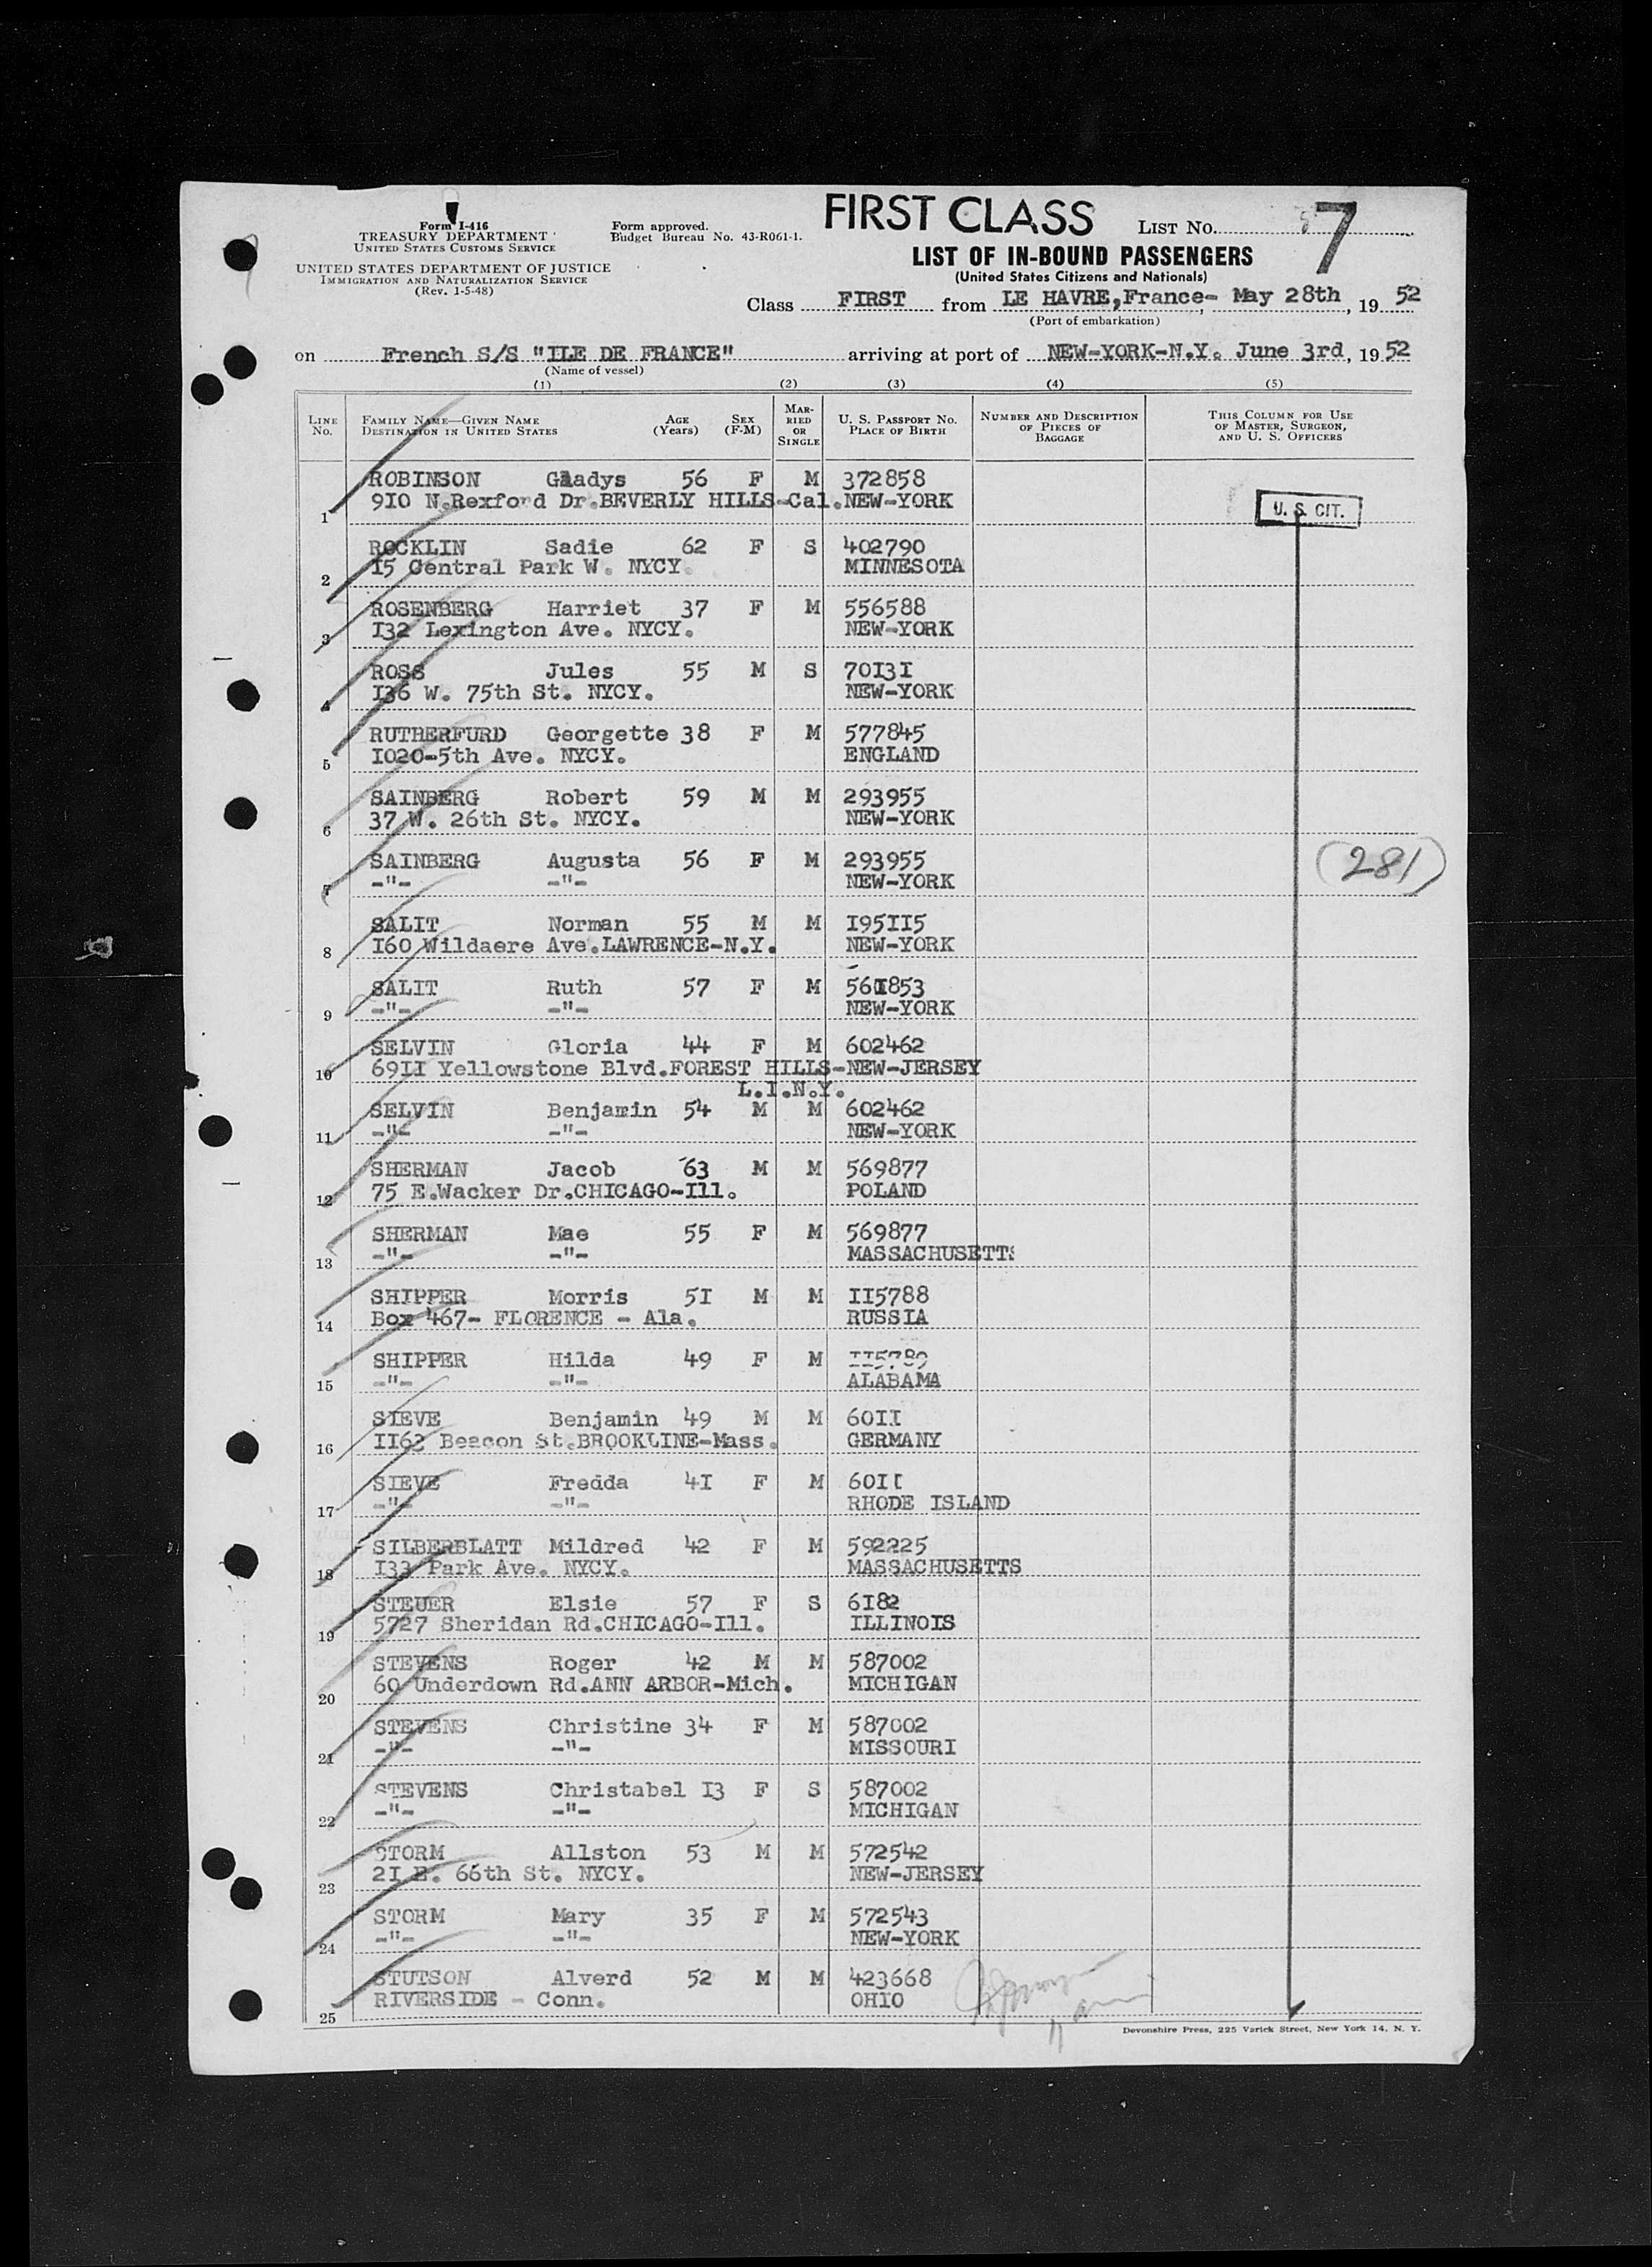 Form I-416
TREASURY DEPARTMENT
UNITED STATES CUSTOMS SERVICE
UNITED STATES DEPARTMENT OF JUSTICE
IMMIGRATION AND NATURALIZATION SERVICE
(Rev. 1-5-48)
Form approved.
Budget Bureau No. 43-R061-1.
FIRST CLASS
LIST No. 7
LIST OF IN-BOUND PASSENGERS
(United States Citizens and Nationals)
Class FIRST from LE HAVRE, France- May 28th, 19 52
(Port of embarkation)
on French S/S "ILE DE FRANCE" arriving at port of NEW-YORK-N.Y. June 3rd, 19 52
(Name of vessel)
(1) (2) (3) (4) (5)
LINE No. FAMILY NAME—GIVEN NAME DESTINATION IN UNITED STATES AGE (Years) SEX (F-M) MARRIED OR SINGLE U. S. PASSPORT No. PLACE OF BIRTH NUMBER AND DESCRIPTION OF PIECES OF BAGGAGE THIS COLUMN FOR USE OF MASTER, SURGEON, AND U. S. OFFICERS
ROBINSON Gladys 56 F M 372858
1 910 N.Rexford Dr.BEVERLY HILLS-Cal.NEW-YORK U. S. CIT.
ROCKLIN Sadie 62 F S 402790
2 I5 Central Park W. NYCY. MINNESOTA
ROSENBERG Harriet 37 F M 556588
3 I32 Lexington Ave. NYCY. NEW-YORK
ROSS Jules 55 M S 70I3I
4 I36 W. 75th St. NYCY. NEW-YORK
RUTHERFURD Georgette 38 F M 577845
5 I020-5th Ave. NYCY. ENGLAND
SAINBERG Robert 59 M M 293955
6 37 W. 26th St. NYCY. NEW-YORK
SAINBERG Augusta 56 F M 293955 (281)
7 -"- -"- NEW-YORK
SALIT Norman 55 M M I95II5
8 I60 Wildaere Ave.LAWRENCE-N.Y. NEW-YORK
SALIT Ruth 57 F M 56I853
9 -"- -"- NEW-YORK
SELVIN Gloria 44 F M 602462
10 69II Yellowstone Blvd.FOREST HILLS-NEW-JERSEY
L.I.N.Y.
SELVIN Benjamin 54 M M 602462
11 -"- -"- NEW-YORK
SHERMAN Jacob 63 M M 569877
12 75 E.Wacker Dr.CHICAGO-Ill. POLAND
SHERMAN Mae 55 F M 569877
13 -"- -"- MASSACHUSETTS
SHIPPER Morris 5I M M II5788
14 Box 467- FLORENCE - Ala. RUSSIA
SHIPPER Hilda 49 F M II5789
15 -"- -"- ALABAMA
SIEVE Benjamin 49 M M 60II
16 II62 Beacon St.BROOKLINE-Mass. GERMANY
SIEVE Fredda 4I F M 60II
17 -"- -"- RHODE ISLAND
SILBERBLATT Mildred 42 F M 592225
18 I33 Park Ave. NYCY. MASSACHUSETTS
STEUER Elsie 57 F S 6I82
19 5727 Sheridan Rd.CHICAGO-Ill. ILLINOIS
STEVENS Roger 42 M M 587002
20 60 Underdown Rd.ANN ARBOR-Mich. MICHIGAN
STEVENS Christine 34 F M 587002
21 -"- -"- MISSOURI
STEVENS Christabel I3 F S 587002
22 -"- -"- MICHIGAN
STORM Allston 53 M M 572542
23 2I E. 66th St. NYCY. NEW-JERSEY
STORM Mary 35 F M 572543
24 -"- -"- NEW-YORK
STUTSON Alverd 52 M M 423668
25 RIVERSIDE - Conn. OHIO
Devonshire Press, 225 Varick Street, New York 14, N. Y.